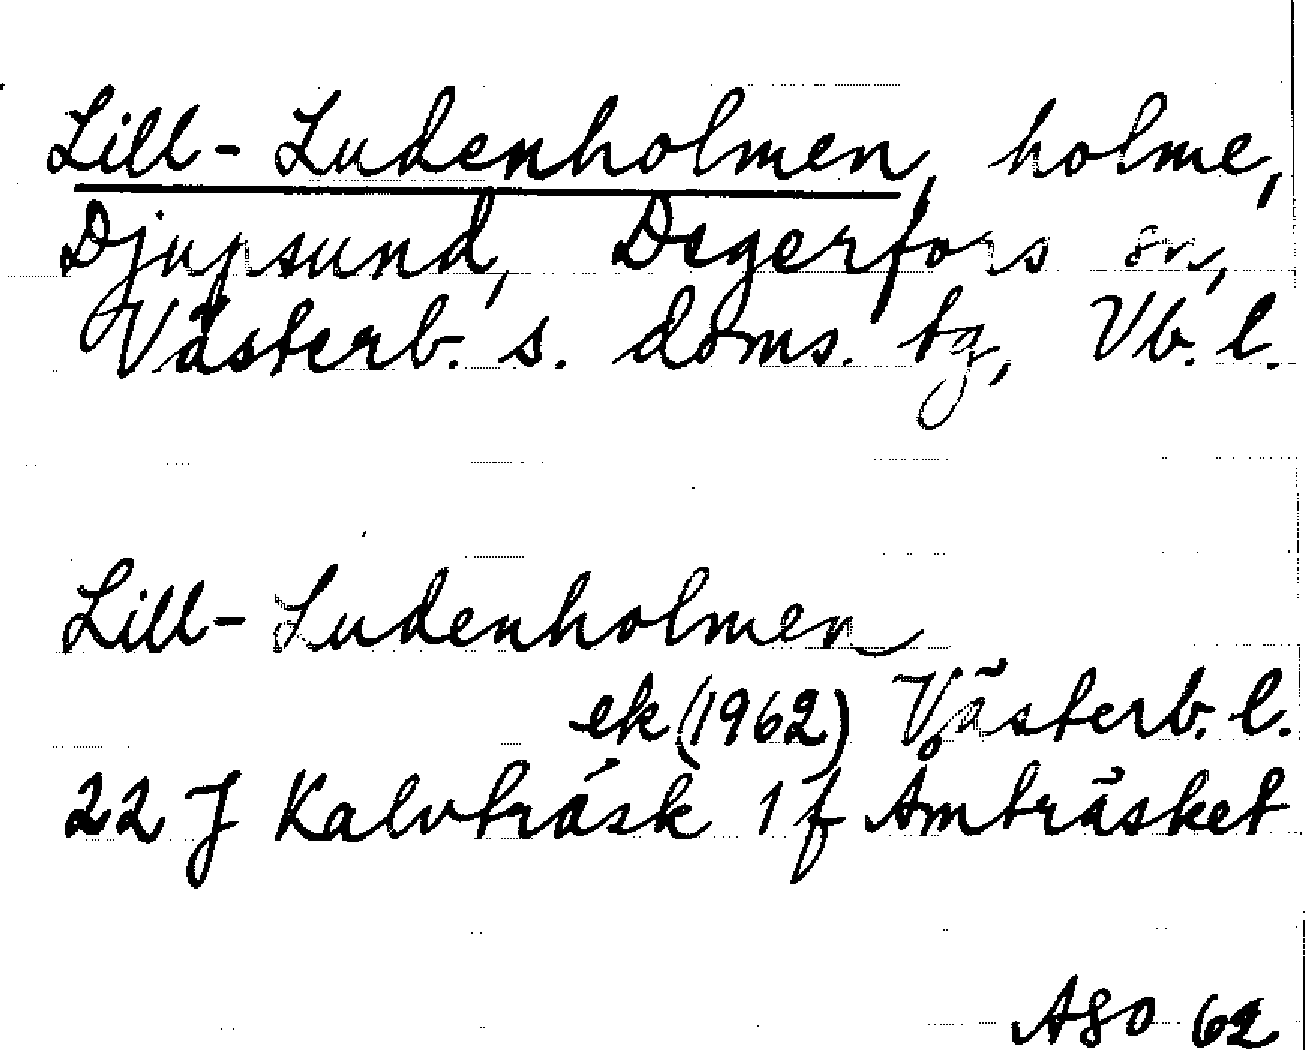 Lill-Ludenholmen, holme,
Djupsund, Degerfors sn,
Västerb. s. doms. tg, Vb. l.
Lill-Ludenholmen
ek (1962) Västerb. l.
22 J Kalvträsk 1 f Amträsket
ASO 62